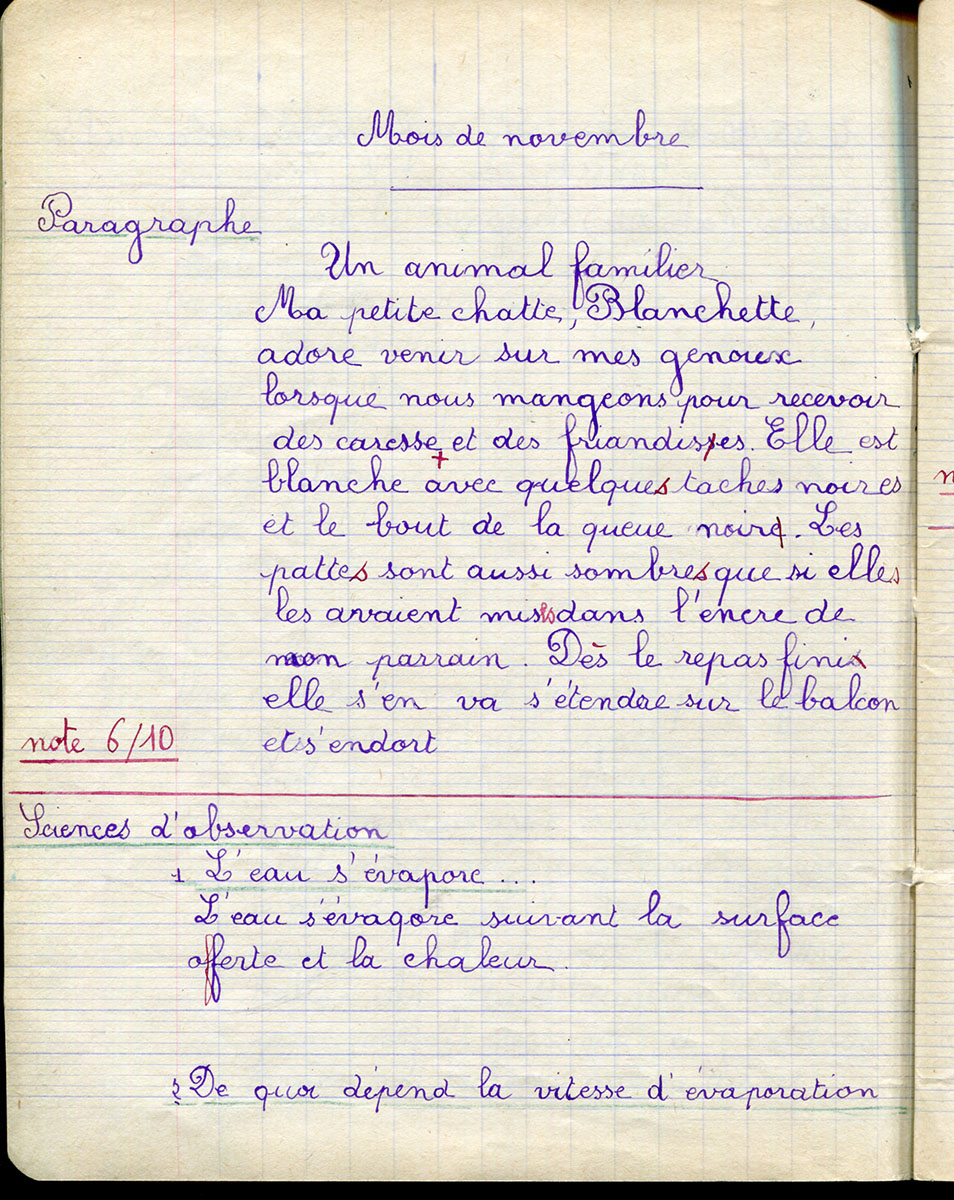 Mois de novembre
Paragraphe
Un animal familier
Ma petite chatte, Blanchette,
adore venir sur mes genoux
lorsque nous mangeons pour recevoir
des caresse et des friandises. Elle est
+
blanche avec quelques taches noires
et le bout de la queue noire. Les
pattes sont aussi sombres que si elles
les avaient mises dans l'encre de
mon parrain. Dès le repas fini
elle s'en va s'étendre sur le balcon
note 6/10
et s'endort
Sciences d'observation
1 L'eau s'évapore...
L'eau s'évapore suivant la surface
offerte et la chaleur.
2 De quoi dépend la vitesse d'évaporation